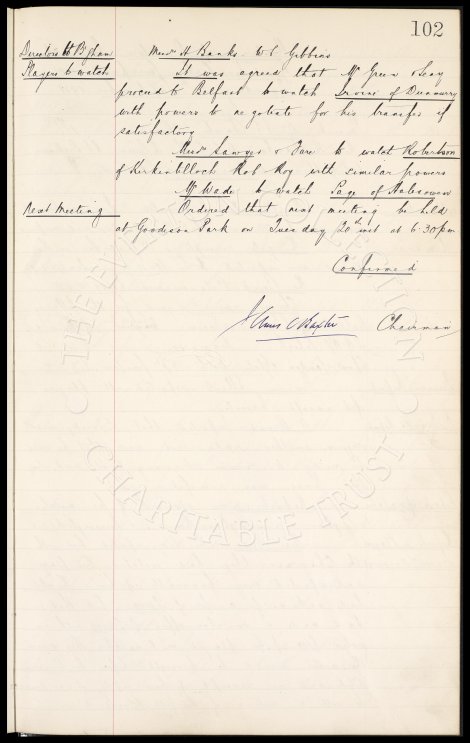 102
Directors to B'ham Messrs H Banks W C Gibbins
Players to watch It was agreed that Mr Green & Leay
proceed to Belfast to watch Irvine of Dunmurry
with powers to negotiate for his transfer if
satisfactory
Messrs Sawyer & to watch Robertson
of Kirkintilloch Rob Roy with similar powers
Mr Wade to watch Page of Halesowen
Next Meeting Ordered that next meeting be held
at Goodison Park on Tuesday 20th inst at 6.30pm
Confirmed
James C Baxter Chairman
THE EVERTON COLLECTION
CHARITABLE TRUST